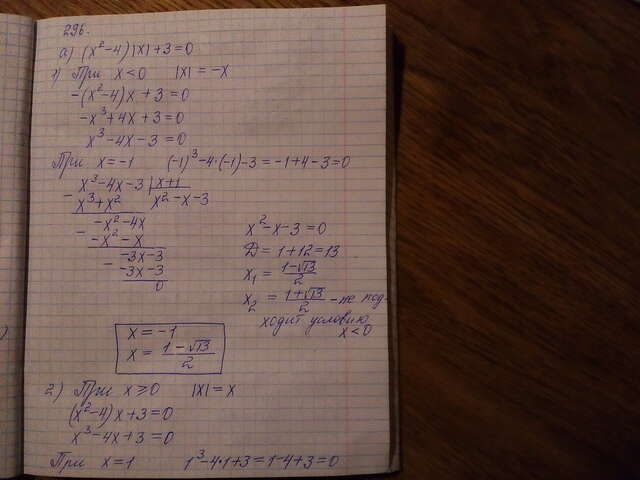 296.
а) (x²-4)|x|+3=0
1) При x<0 |x|=-x
-(x²-4)x+3=0
-x³+4x+3=0
x³-4x-3=0
При x=-1 (-1)³-4·(-1)-3=-1+4-3=0
x³-4x-3 | x+1
- x³+x² x²-x-3
-x²-4x
- -x²-x
-3x-3
- -3x-3
0
x²-x-3=0
Д=1+12=13
x₁ = (1-√13)/2
x₂ = (1+√13)/2 - не под-
ходит условию
x<0
x=-1
x= (1-√13)/2
2) При x≥0 |x|=x
(x²-4)x+3=0
x³-4x+3=0
При x=1 1³-4·1+3=1-4+3=0